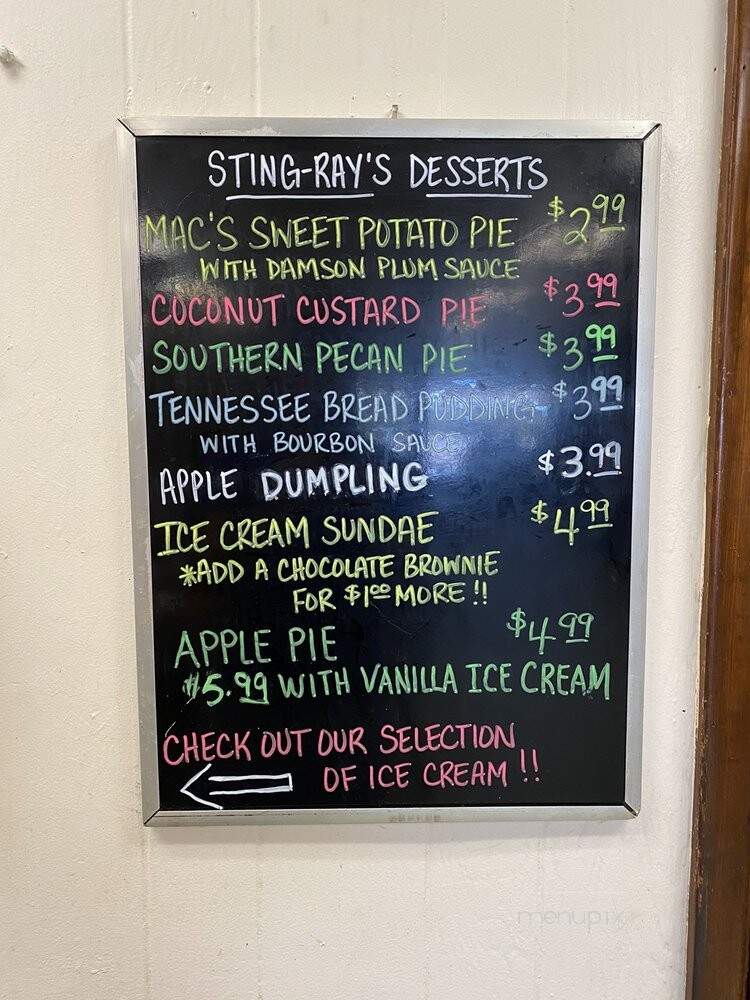 STING-RAY'S DESSERTS
MAC'S SWEET POTATO PIE $2.99
WITH DAMSON PLUM SAUCE
COCONUT CUSTARD PIE $3.99
SOUTHERN PECAN PIE $3.99
TENNESSEE BREAD PUDDING $3.99
WITH BOURBON SAUCE
APPLE DUMPLING $3.99
ICE CREAM SUNDAE $4.99
*ADD A CHOCOLATE BROWNIE
FOR $1.00 MORE!!
APPLE PIE $4.99
$5.99 WITH VANILLA ICE CREAM
CHECK OUT OUR SELECTION
OF ICE CREAM!!
menupix